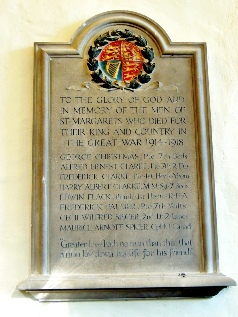 TO THE GLORY OF GOD AND
IN MEMORY OF THE MEN OF
ST MARGARETS WHO DIED FOR
THEIR KING AND COUNTRY IN
THE GREAT WAR 1914-1918
GEORGE CHRISTMAS Pte 7th Beds
ALFRED ERNEST CLARKE
FREDERICK CLARKE
HARRY ALBERT CLARKE M.M.
EDWIN FLACK
FREDERICK PALMER Pte 7th
CECIL WILFRED SPICER 2nd Lt
MAURICE ARNOTT SPICER
Greater love hath no man than this that
a man lay down his life for his friends